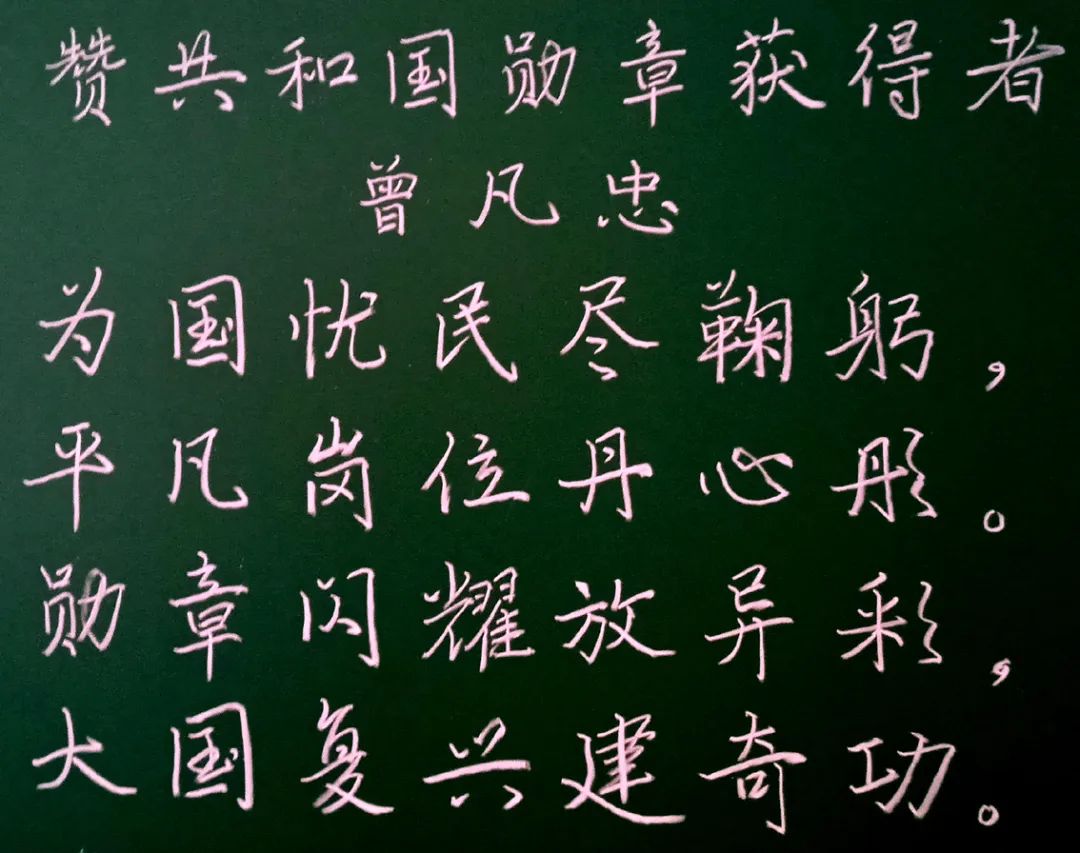 赞共和国勋章获得者
曾凡忠
为国忧民尽鞠躬，
平凡岗位丹心彤。
勋章闪耀放异彩，
大国复兴建奇功。